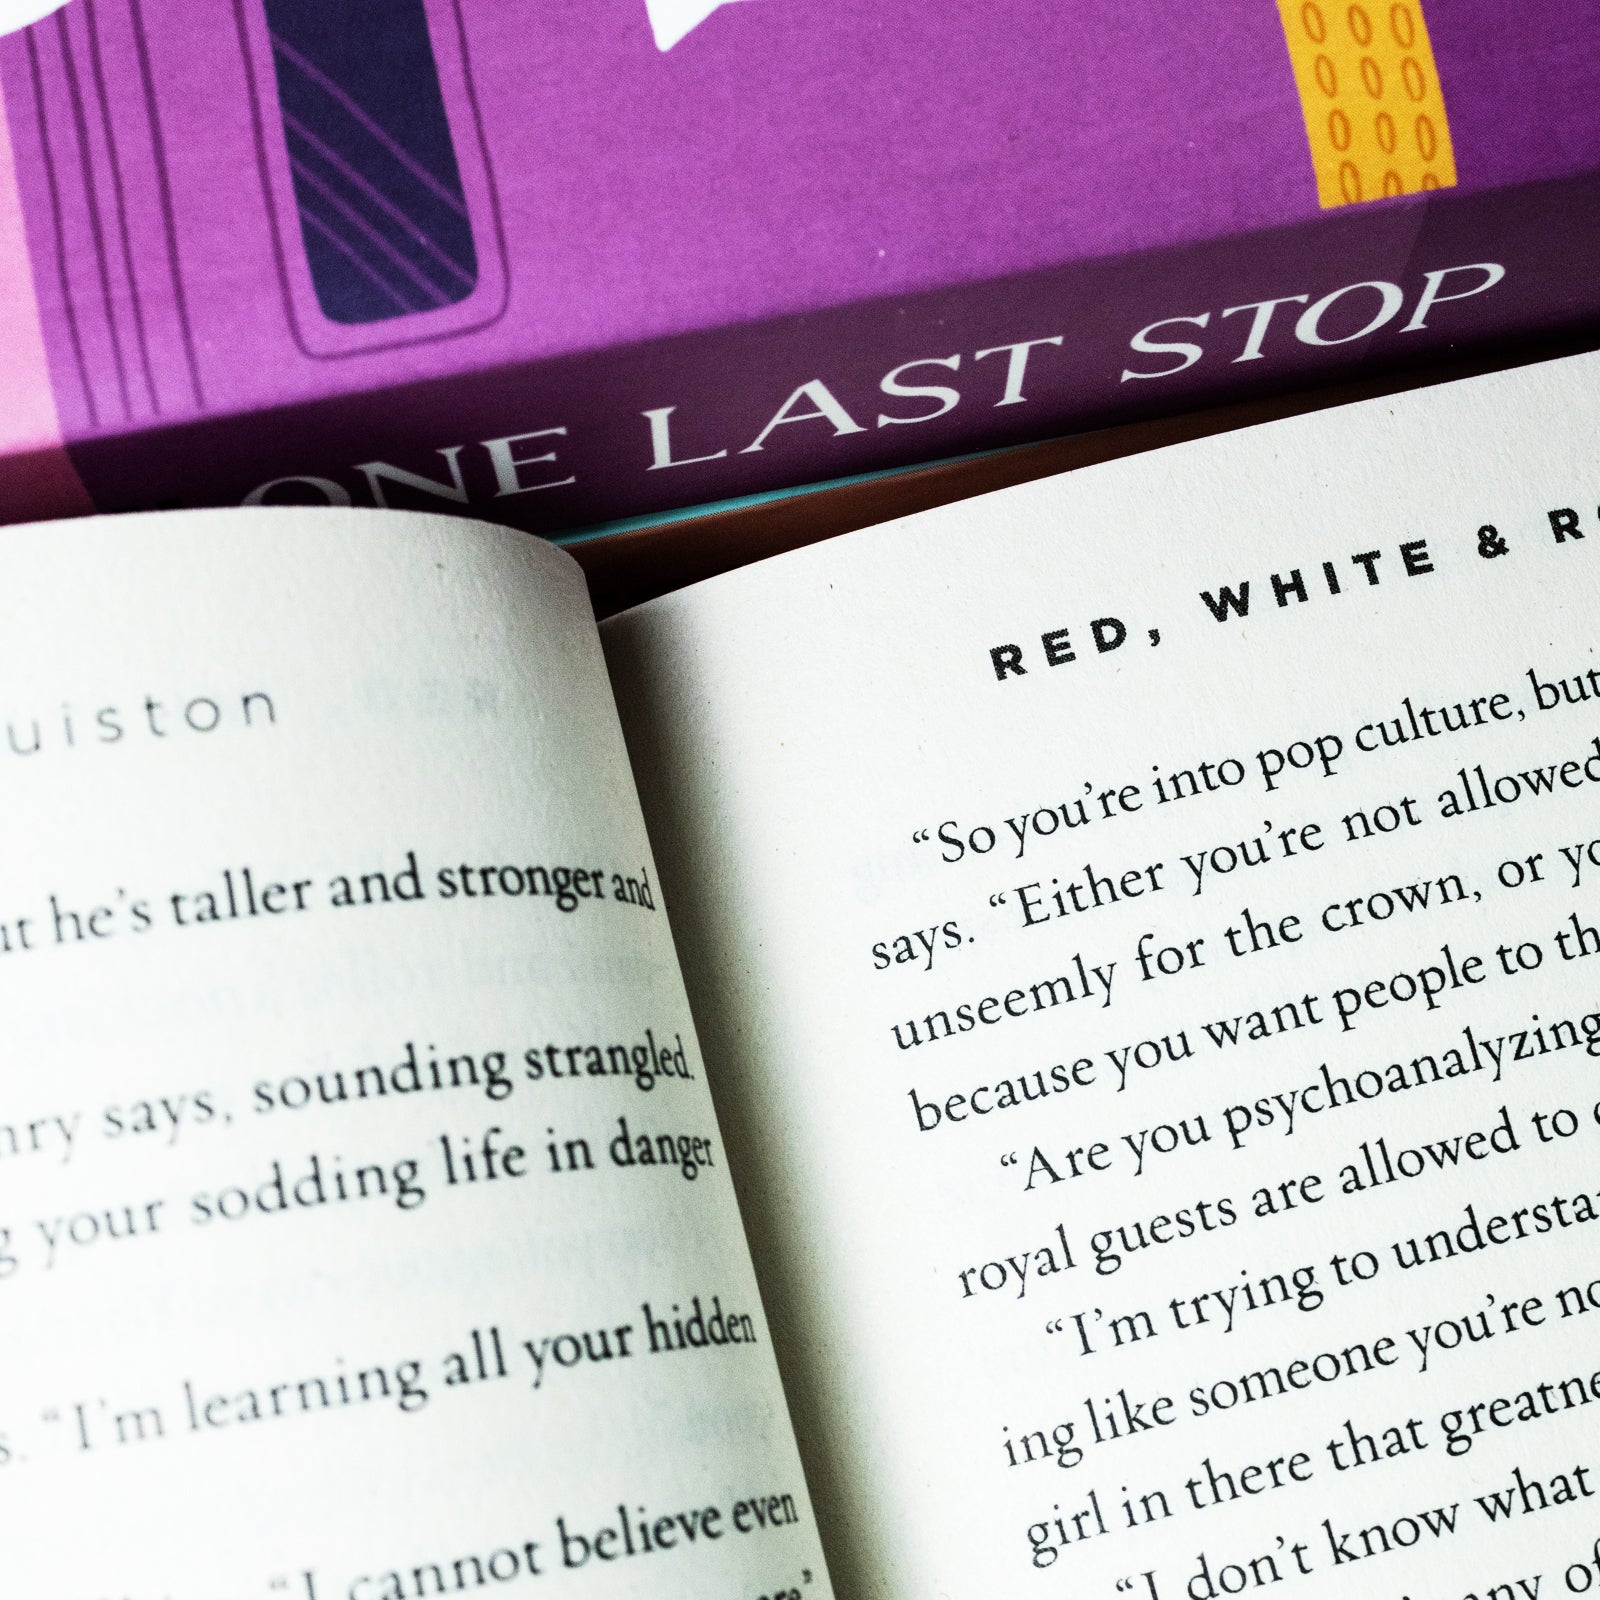 ONE LAST STOP
uiston
he's taller and stronger and
says, sounding strangled.
your sodding life in danger
"I'm learning all your hidden
"I cannot believe even
RED, WHITE & R
“So you're into pop culture, but
says. “Either you're not allowed
unseemly for the crown, or yo
because you want people to th
“Are you psychoanalyzing
royal guests are allowed to
“I'm trying to understa
ing like someone you're no
girl in there that greatne
“I don't know what
any of